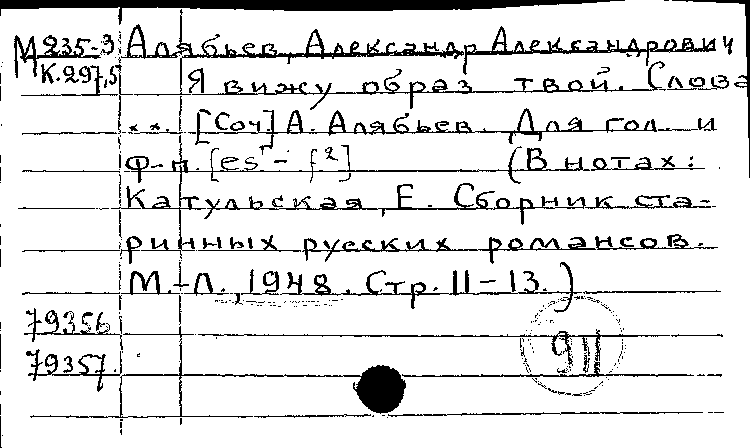 М 235-3 Алябьев, Александр Александрович
К.297,5 Я вижу образ твой. Слова
**. [Соч] А. Алябьев. Для гол. и
ф-п. [es¹ - f²] (В нотах:
Катульская, Е. Сборник ста-
ринных русских романсов.
М.-Л., 1948. Стр. 11-13.)
79356
79357.
911